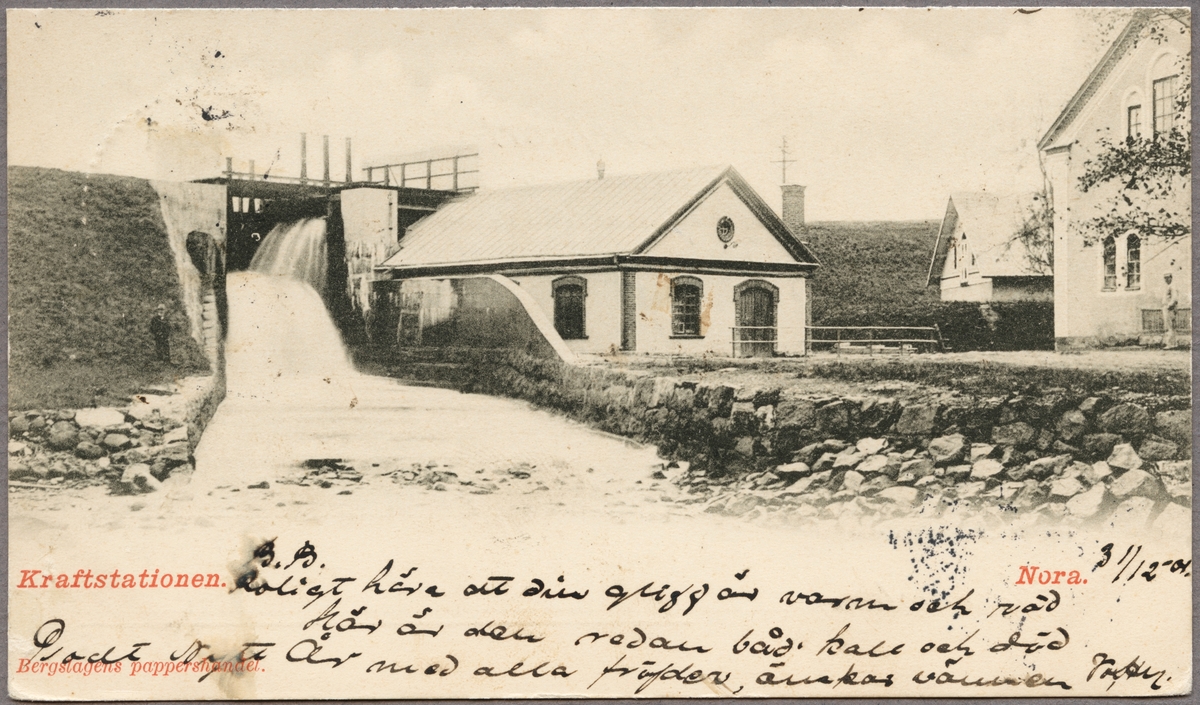 Kraftstationen.
Nora. 31/12-01.
B.B.
Roligt höra att din gligg är varm och röd
Här är den redan båd' kall och död
Godt Nytt År med alla fröjder, önskas vännen
Bergslagens pappershandel.